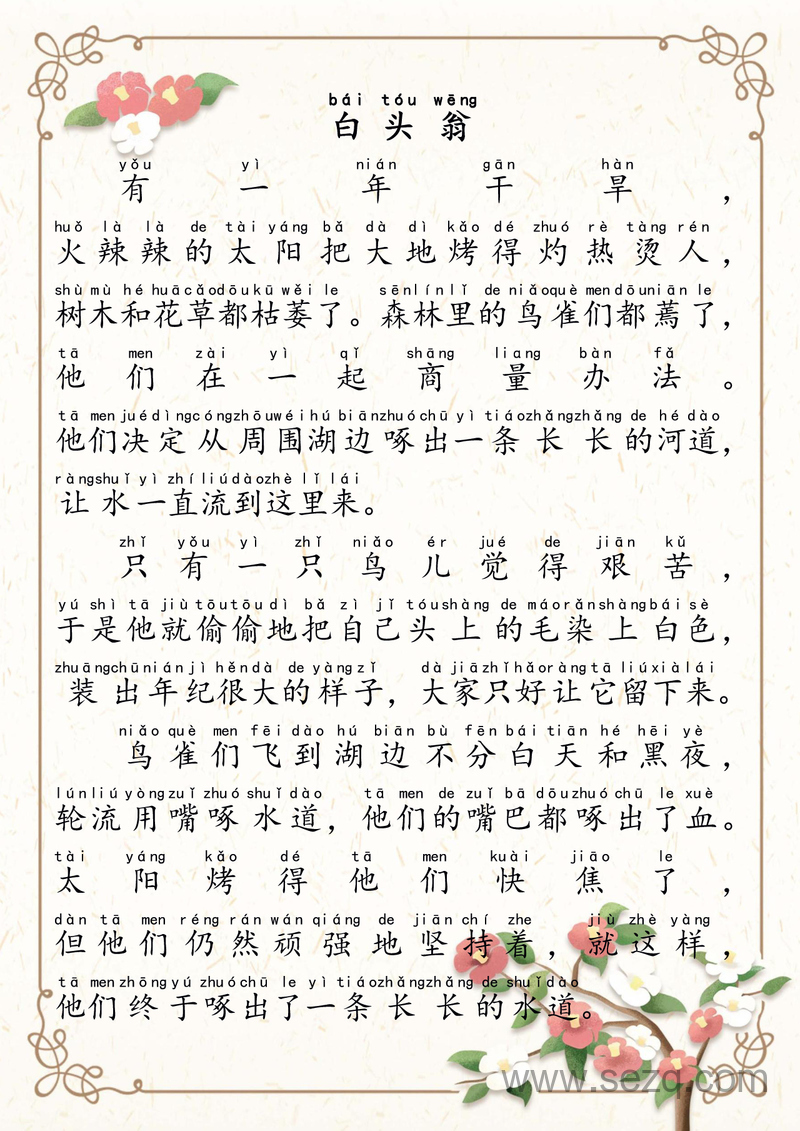 bái tóu wēng
白头翁
yǒu yì nián gān hàn
有一年干旱，
huǒ là là de tài yáng bǎ dà dì kǎo dé zhuó rè tàng rén
火辣辣的太阳把大地烤得灼热烫人，
shù mù hé huā cǎo dōu kū wěi le sēn lín lǐ de niǎo què men dōu niān le
树木和花草都枯萎了。森林里的鸟雀们都蔫了，
tā men zài yì qǐ shāng liang bàn fǎ
他们在一起商量办法。
tā men jué dìng cóng zhōu wéi hú biān zhuó chū yì tiáo zhǎng zhǎng de hé dào
他们决定从周围湖边啄出一条长长的河道，
ràng shuǐ yì zhí liú dào zhè lǐ lái
让水一直流到这里来。
zhǐ yǒu yì zhī niǎo ér jué de jiān kǔ
只有一只鸟儿觉得艰苦，
yú shì tā jiù tōu tōu dì bǎ zì jǐ tóu shàng de máo rǎn shàng bái sè
于是他就偷偷地把自己头上的毛染上白色，
zhuāng chū nián jì hěn dà de yàng zǐ dà jiā zhǐ hǎo ràng tā liú xià lái
装出年纪很大的样子，大家只好让它留下来。
niǎo què men fēi dào hú biān bù fēn bái tiān hé hēi yè
鸟雀们飞到湖边不分白天和黑夜，
lún liú yòng zuǐ zhuó shuǐ dào tā men de zuǐ bā dōu zhuó chū le xuè
轮流用嘴啄水道，他们的嘴巴都啄出了血。
tài yáng kǎo dé tā men kuài jiāo le
太阳烤得他们快焦了，
dàn tā men réng rán wán qiáng de jiān chí zhe jiù zhè yàng
但他们仍然顽强地坚持着，就这样，
tā men zhōng yú zhuó chū le yì tiáo zhǎng zhǎng de shuǐ dào
他们终于啄出了一条长长的水道。
www.sezq.com